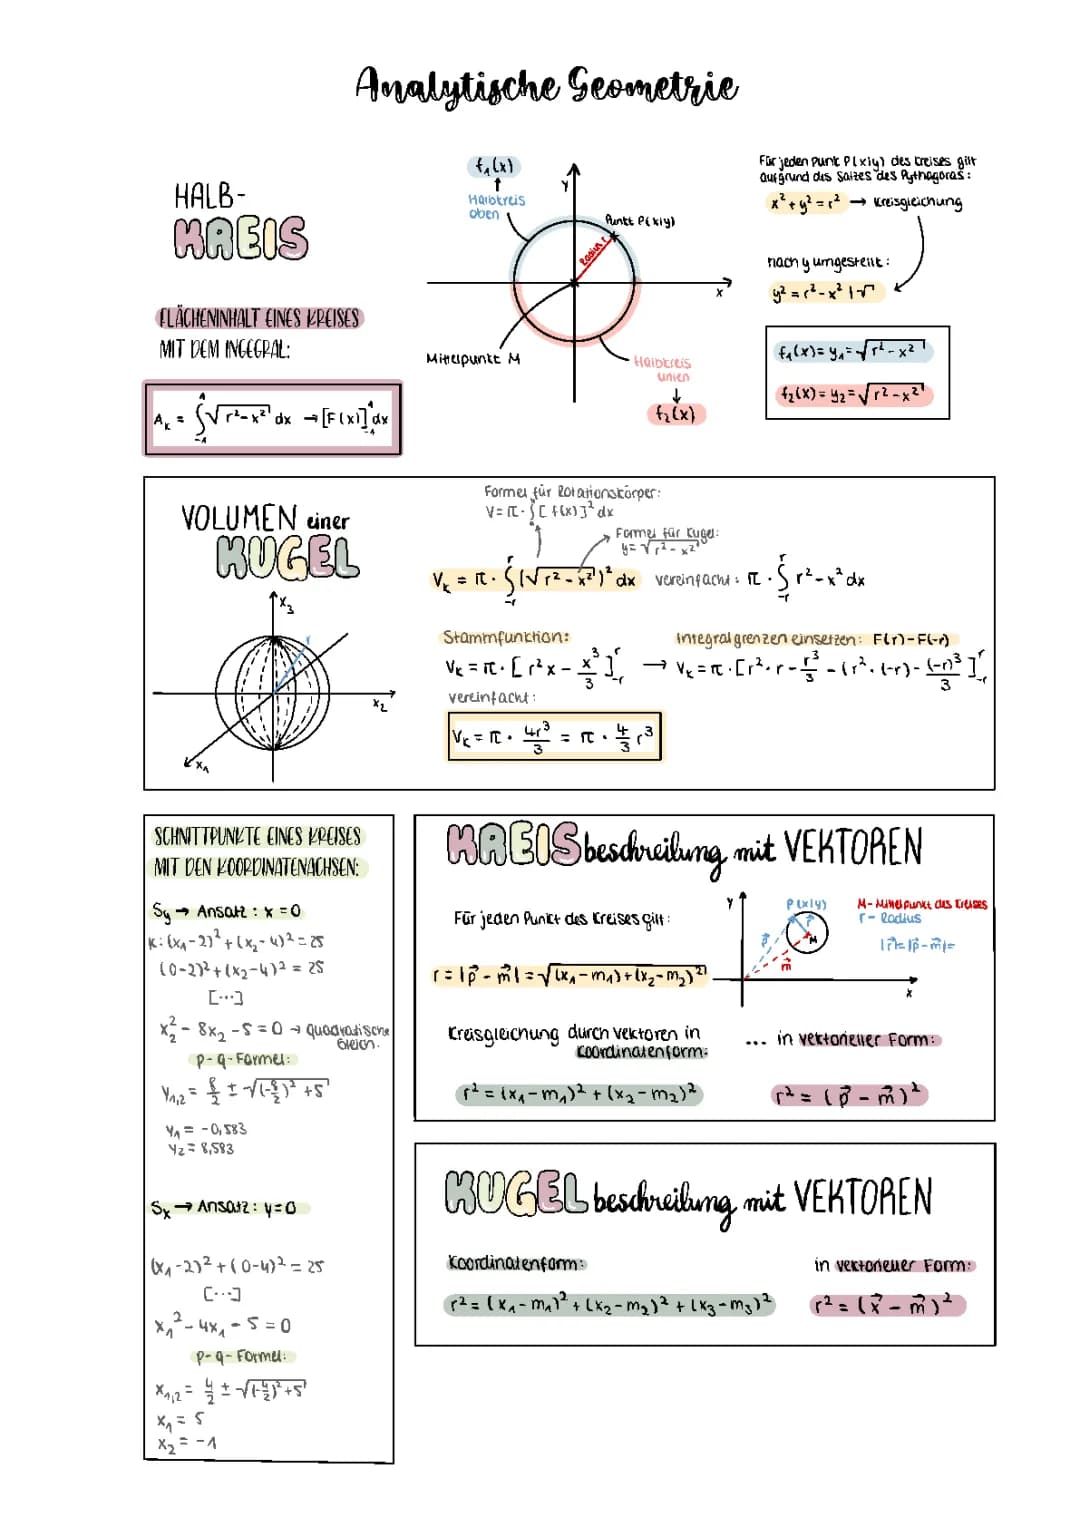 Analytische Geometrie
HALB-
KREIS
FLÄCHENINHALT EINES KREISES
MIT DEM INGEGRAL:
A_K = ∫_{-1}^{1} √(r²-x²) dx → [F(x)]_{-1}^{1} dx
f₁(x)
Halbkreis
oben
y
Punkt P(x|y)
Radius r
x
Mittelpunkt M
Halbkreis
unten
f₂(x)
Für jeden Punkt P(x|y) des Kreises gilt
aufgrund des Satzes des Pythagoras:
x² + y² = r² → Kreisgleichung
nach y umgestellt:
y² = r² - x² | √
f₁(x) = y₁ = √(r² - x²)
f₂(x) = y₂ = √(r² - x²)
VOLUMEN einer
KUGEL
x₃
x₂
x₁
Formel für Rotationskörper:
V = π · ∫ [f(x)]² dx
Formel für Kugel:
y = √(r² - x²)
V_K = π · ∫_{-r}^{r} (√(r² - x²))² dx vereinfacht: π · ∫_{-r}^{r} r² - x² dx
Stammfunktion:
V_K = π · [r²x - x³/3]_{-r}^{r}
Integralgrenzen einsetzen: F(r) - F(-r)
→ V_K = π · [r² · r - r³/3 - (r² · (-r) - (-r)³/3]_{-r}^{r}
vereinfacht:
V_K = π · 4r³/3 = π · 4/3 r³
SCHNITTPUNKTE EINES KREISES
MIT DEN KOORDINATENACHSEN:
Sy → Ansatz: x = 0
K: (x₁ - 2)² + (x₂ - 4)² = 25
(0-2)² + (x₂-4)² = 25
[...]
x₂² - 8x₂ - 5 = 0 → quadratische
Gleich.
p-q-Formel:
y₁,₂ = 8/2 ± √((-8/2)² + 5)
y₁ = -0,583
y₂ = 8,583
Sx → Ansatz: y = 0
(x₁ - 2)² + (0-4)² = 25
[...]
x₁² - 4x₁ - 5 = 0
p-q-Formel:
x₁,₂ = 4/2 ± √((-4/2)² + 5)
x₁ = 5
x₂ = -1
KREISbeschreibung mit VEKTOREN
Für jeden Punkt des Kreises gilt:
r = |p⃗ - m⃗| = √((x₁ - m₁) + (x₂ - m₂)²)
y
P(x|y)
r⃗
M
p⃗
m⃗
x
M - Mittelpunkt des Kreises
r - Radius
|r⃗| = |p⃗ - m⃗| =
Kreisgleichung durch Vektoren in
Koordinatenform:
r² = (x₁ - m₁)² + (x₂ - m₂)²
... in vektorieller Form:
r² = (p⃗ - m⃗)²
KUGELbeschreibung mit VEKTOREN
Koordinatenform:
r² = (x₁ - m₁)² + (x₂ - m₂)² + (x₃ - m₃)²
in vektorieller Form:
r² = (x⃗ - m⃗)²